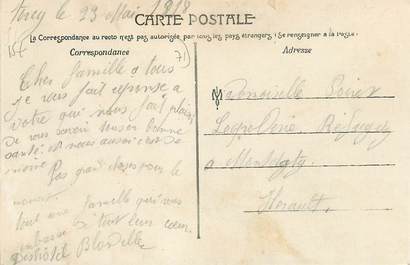 le 23 Mai 1918
CARTE POSTALE
La Correspondance au recto n'est pas autorisée par tous les pays étrangers (Se renseigner à la Poste)
Correspondance
Adresse
Cher famille a tous
je vous fait reponse a
votre qui nous fait plaisir
De vous savoir tous en bonne
santé et nous aussi c'est de
meme
Pas grand choses pour le
moment
tout une famille qui vous
embrasse de tout leur cœur
Blondelle
Mademoiselle
Réfugiée
a
Herault